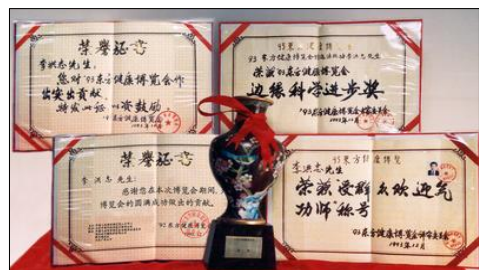 荣誉证书
李洪志先生：
您对'93东方健康博览会作
出突出贡献，
特发此证以资鼓励。
'93东方健康博览会
'93东方健康博览会
李洪志先生，
荣获'93东方健康博览会
边缘科学进步奖
'93东方健康博览会评审委员会
1993年12月
荣誉证书
李洪志先生：
感谢您在本次博览会期间，为
博览会的圆满成功做出的贡献。
'93东方健康博览会
'93东方健康博览
李洪志先生
荣获受群众欢迎气
功师称号
'93东方健康博览会评审委员会
1993年12月